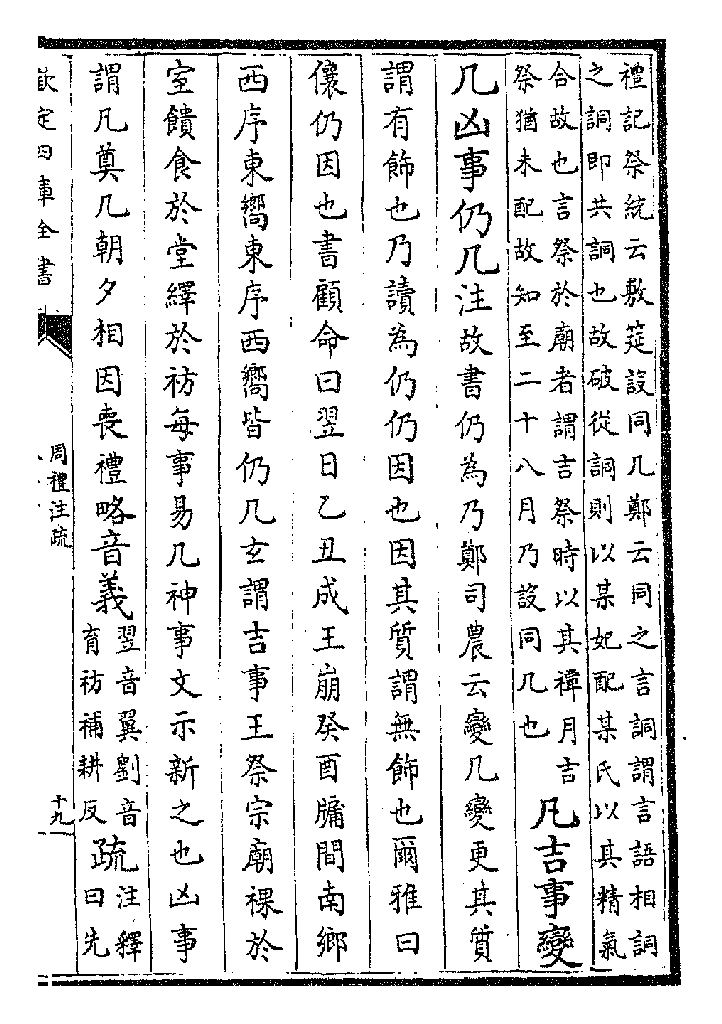 禮記祭統云敷筵設同几鄭云同之言詷謂言語相詷
之詷即共詷也故破從詷則以某妃配某氏以其精氣
合故也言祭於廟者謂吉祭時以其禫月吉
祭猶未配故知至二十八月乃設同几也
凡吉事變
几凶事仍几注故書仍為乃鄭司農云變几變更其質
謂有飾也乃讀為仍仍因也因其質謂無飾也爾雅曰
儴仍因也書顧命曰翌日乙丑成王崩癸酉牖間南鄉
西序東嚮東序西嚮皆仍几玄謂吉事王祭宗廟祼於
室饋食於堂繹於祊每事易几神事文示新之也凶事
謂凡奠几朝夕相因喪禮略音義
翌音翼劉音
育祊補耕反
疏
注釋
曰先
欽定四庫全書
周禮注疏
十九